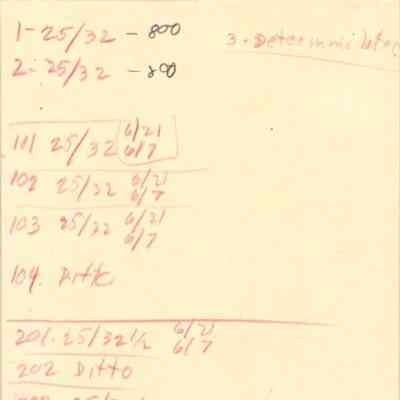 1-25/32 - 800
2-25/32 - 800
3. Determini
101 25/32 6/21
6/7
102 25/32 6/21
6/7
103 25/32 6/21
6/7
104. Ditto
201. 25/32 1/2 6/21
6/7
202 Ditto